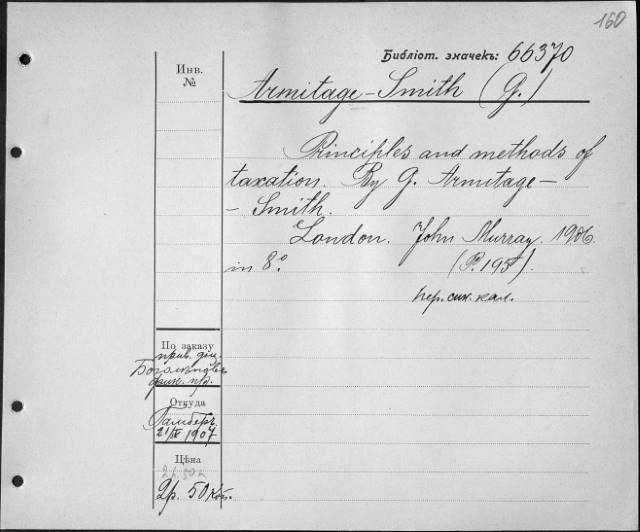 160
Библіот. значекъ: 66370
Инв.
№
Armitage-Smith (G.)
Principles and methods of
taxation. By G. Armitage-
- Smith.
London. John Murray. 1906.
in 8°. (P. 195).
пер. сик. кал.
По заказу
прив. доц.
фин. пр.
Откуда
21/IX 1907
Цѣна
2р. 50 коп.
2р. 50 коп.